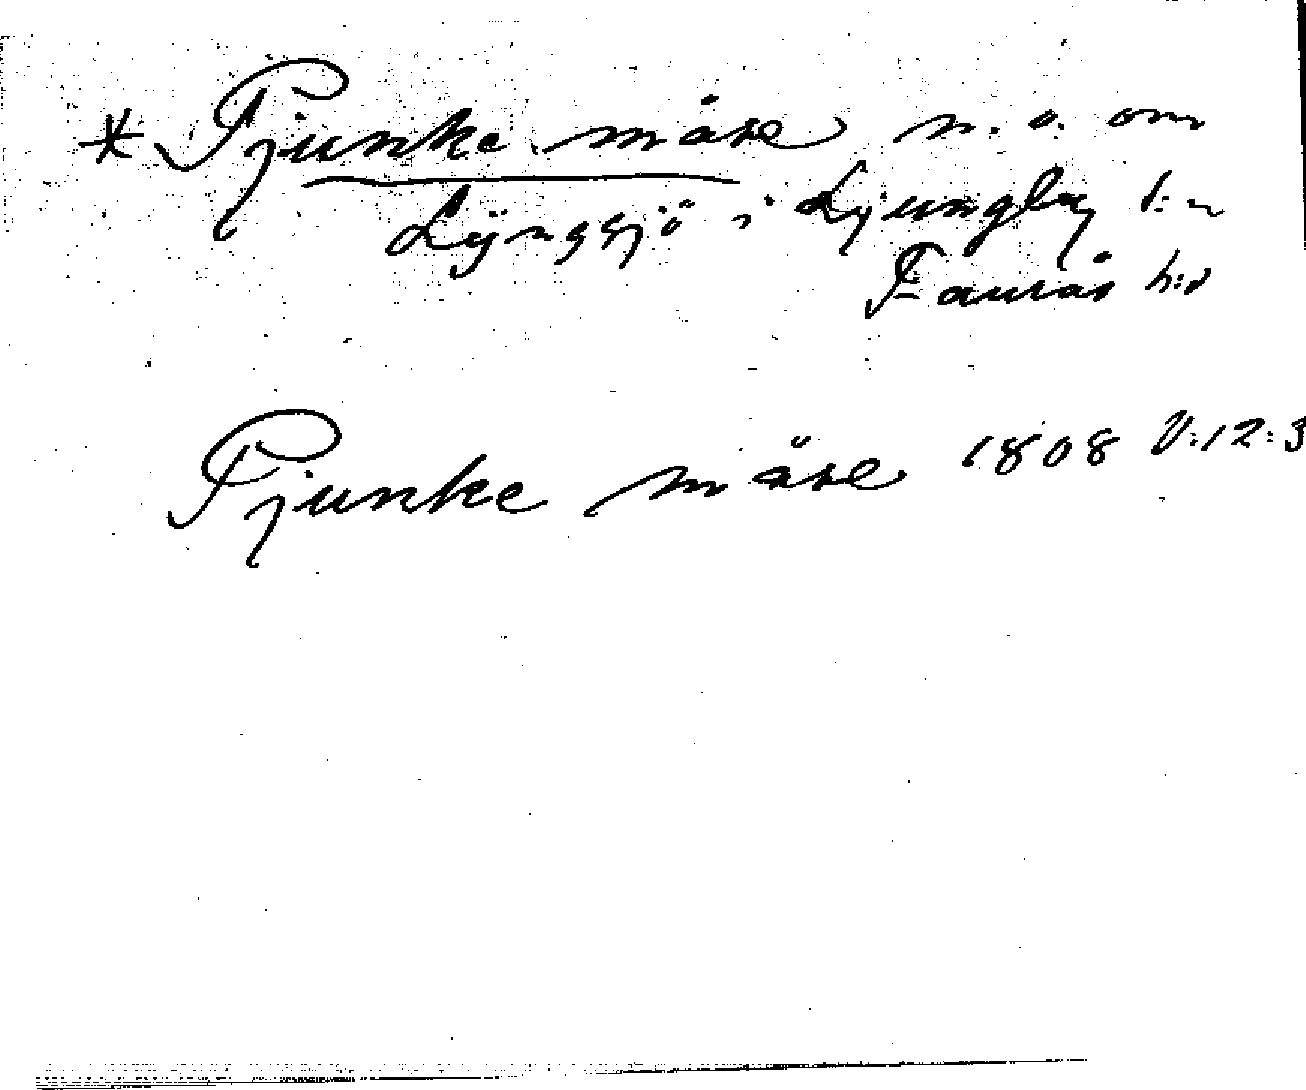 * Pjunke måse n. o. om
Lyngsjö i Ljungby s:n
Faurås h:d
Pjunke måse 1808 V:12:3